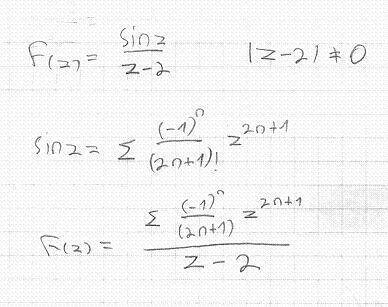 F(z) = sin z / z-2    |z-2| ≠ 0
sin z = Σ (-1)^n / (2n+1)! z^{2n+1}
F(z) = Σ (-1)^n / (2n+1) z^{2n+1} / z-2